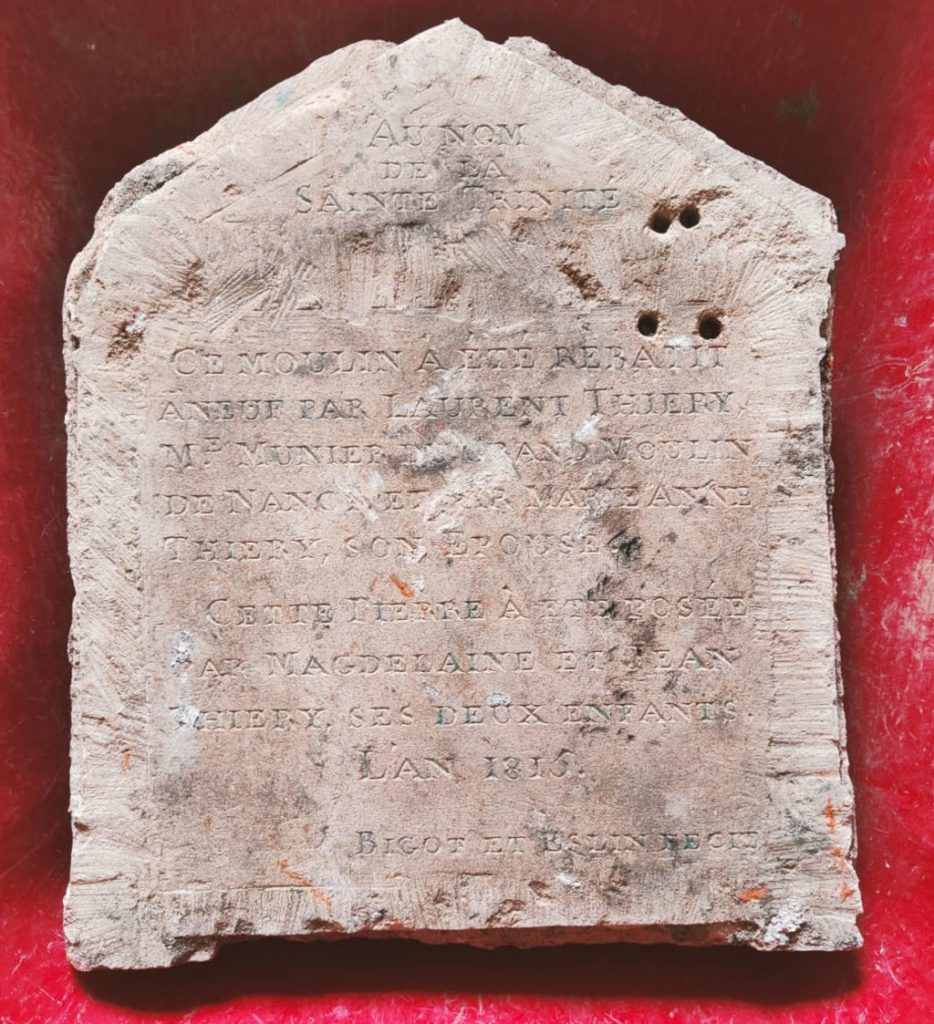 AU NOM
DE LA
SAINTE TRINITE
CE MOULIN A ÉTÉ REBATIT
ANEUF PAR LAURENT THIERY,
MR MUNIER DU GRAND MOULIN
DE NANCY ET PAR MARIE ANNE
THIERY, SON EPOUSE
CETTE PIERRE À ETÉ POSÉE
PAR MAGDELAINE ET JEAN
THIERY, SES DEUX ENFANTS.
LAN 1815.
BIGOT ET ESLIN FECIT